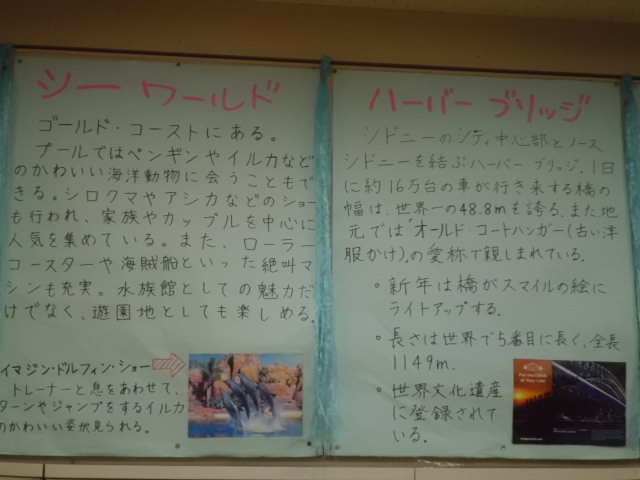 シー ワールド
ゴールド・コーストにある。
プールではペンギンやイルカなど
のかわいい海洋動物に会うこともで
きる。シロクマやアシカなどのショー
も行われ、家族やカップルを中心に
人気を集めている。また、ローラー
コースターや海賊船といった絶叫マ
シンも充実。水族館としての魅力だ
けでなく、遊園地としても楽しめる。
イマジン・ドルフィン・ショー
トレーナーと息をあわせて、
ターンやジャンプをするイルカ
のかわいい姿が見られる。
ハーバー ブリッジ
シドニーのシティ中心部とノース
シドニーを結ぶハーバー ブリッジ。1日
に約16万台の車が行き来する橋の
幅は、世界一の48.8mを誇る。また地
元では"オールド・コートハンガー(古い洋
服かけ)"の愛称で親しまれている。
・新年は橋がスマイルの絵に
ライトアップする。
・長さは世界で5番目に長く、全長
1149m.
・世界文化遺産
に登録されて
いる。
For the Climb
of Your Life!